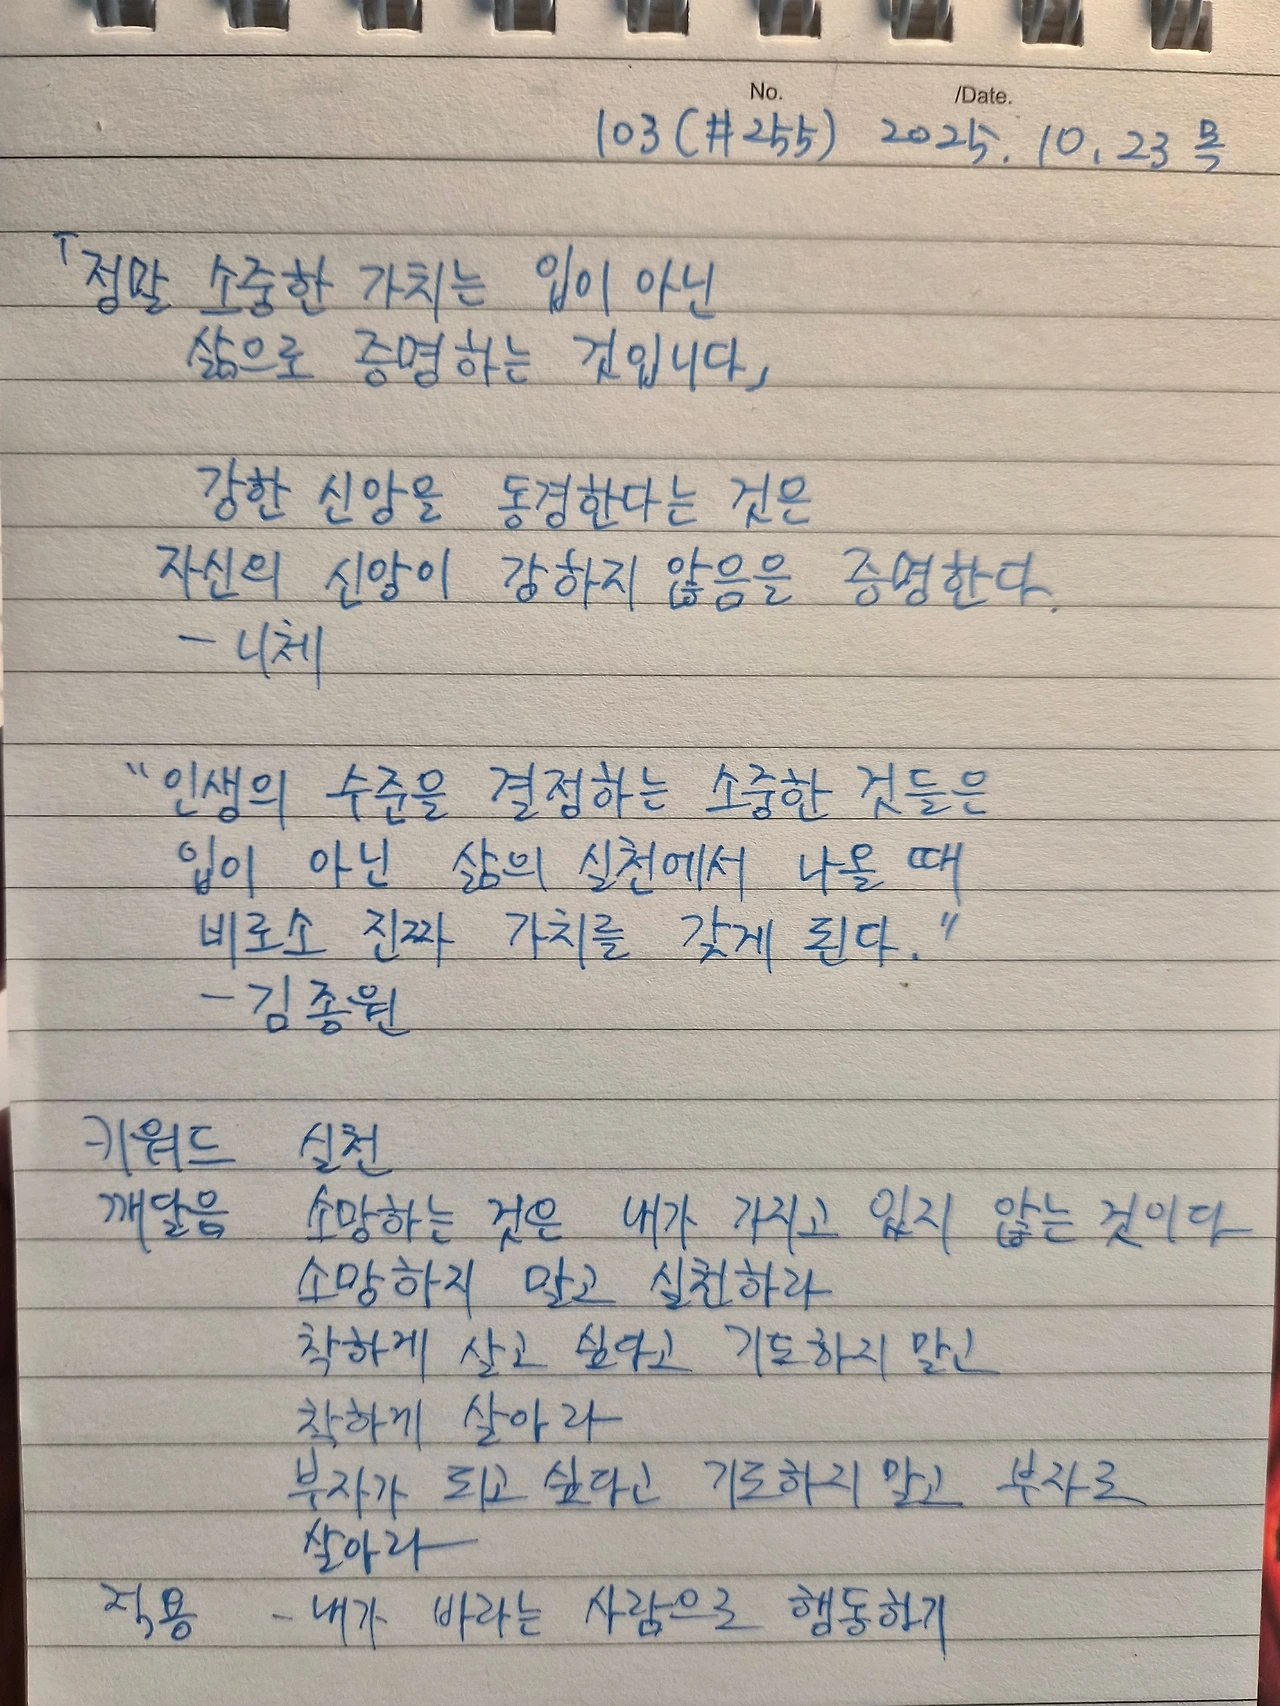 No. /Date.
103(#255) 2025. 10. 23 목
「정말 소중한 가치는 입이 아닌
삶으로 증명하는 것입니다」
강한 신앙을 동경한다는 것은
자신의 신앙이 강하지 않음을 증명한다.
- 니체
"인생의 수준을 결정하는 소중한 것들은
입이 아닌 삶의 실천에서 나올 때
비로소 진짜 가치를 갖게 된다."
- 김종원
키워드 실천
깨달음 소망하는 것은 내가 가지고 있지 않는 것이다
소망하지 말고 실천하라
착하게 살고 싶다고 기도하지 말고
착하게 살아라
부자가 되고 싶다고 기도하지 말고 부자로
살아라
적용 - 내가 바라는 사람으로 행동하기